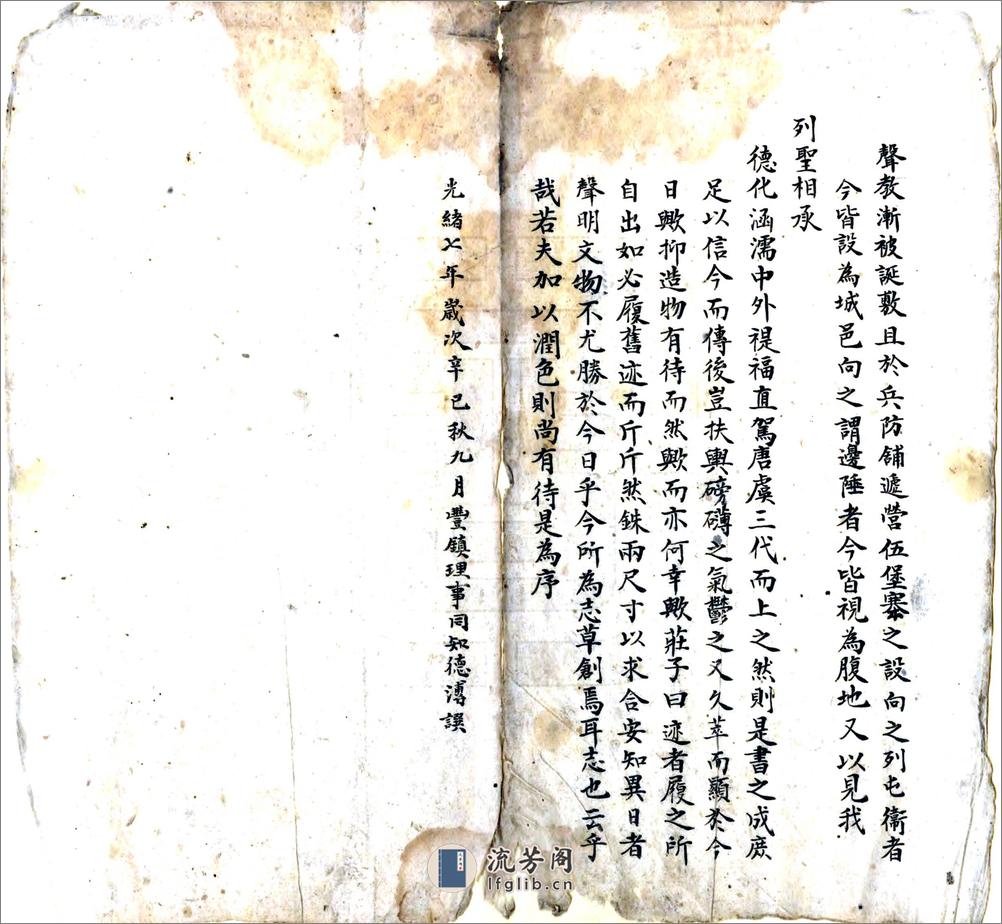 聲教漸被誕敷且於兵防舖遞營伍堡寨之設向之列屯衞者
今皆設為城邑向之謂邊陲者今皆視為腹地又以見我
列聖相承
德化涵濡中外禔福直駕唐虞三代而上之然則是書之成庶
足以信今而傳後豈扶輿磅礴之氣鬱之又久萃而顯於今
日歟抑造物有待而然歟而亦何幸歟莊子曰迹者履之所
自出如必履舊迹而斤斤然銖兩尺寸以求合安知異日者
聲明文物不尤勝於今日乎今所為志草創焉耳志也云乎
哉若夫加以潤色則尚有待是為序
光緒七年歲次辛巳秋九月豐鎮理事同知德溥譔
流芳阁
lfglib.cn